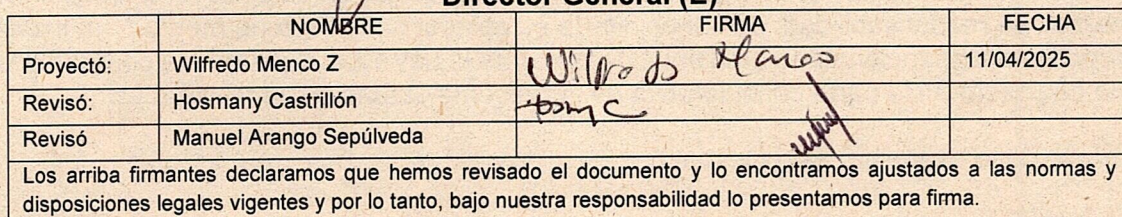 Director General (E)
NOMBRE FIRMA FECHA
Proyectó: Wilfredo Menco Z Wilfredo Menco 11/04/2025
Revisó: Hosmany Castrillón HosmyC
Revisó Manuel Arango Sepúlveda
Los arriba firmantes declaramos que hemos revisado el documento y lo encontramos ajustados a las normas y
disposiciones legales vigentes y por lo tanto, bajo nuestra responsabilidad lo presentamos para firma.